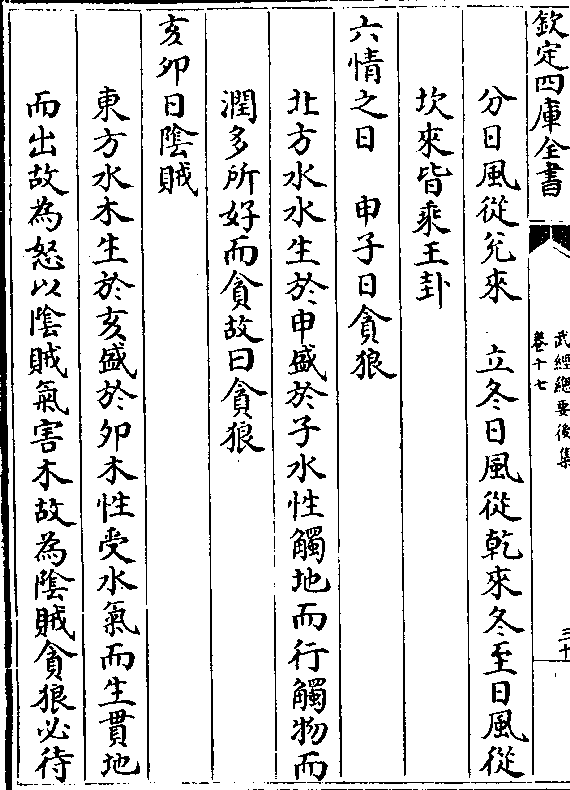 欽定四庫全書
武經總要後集
卷十七
三十
分日風從兊來　立冬日風從乾來冬至日風從
坎來皆乘王卦
六情之日　申子日貪狼
北方水水生於申盛於子水性觸地而行觸物而
潤多所好而貪故曰貪狼
亥卯日陰賊
東方水木生於亥盛於卯木性受水氣而生貫地
而出故為怒以陰賊氣害木故為陰賊貪狼必待